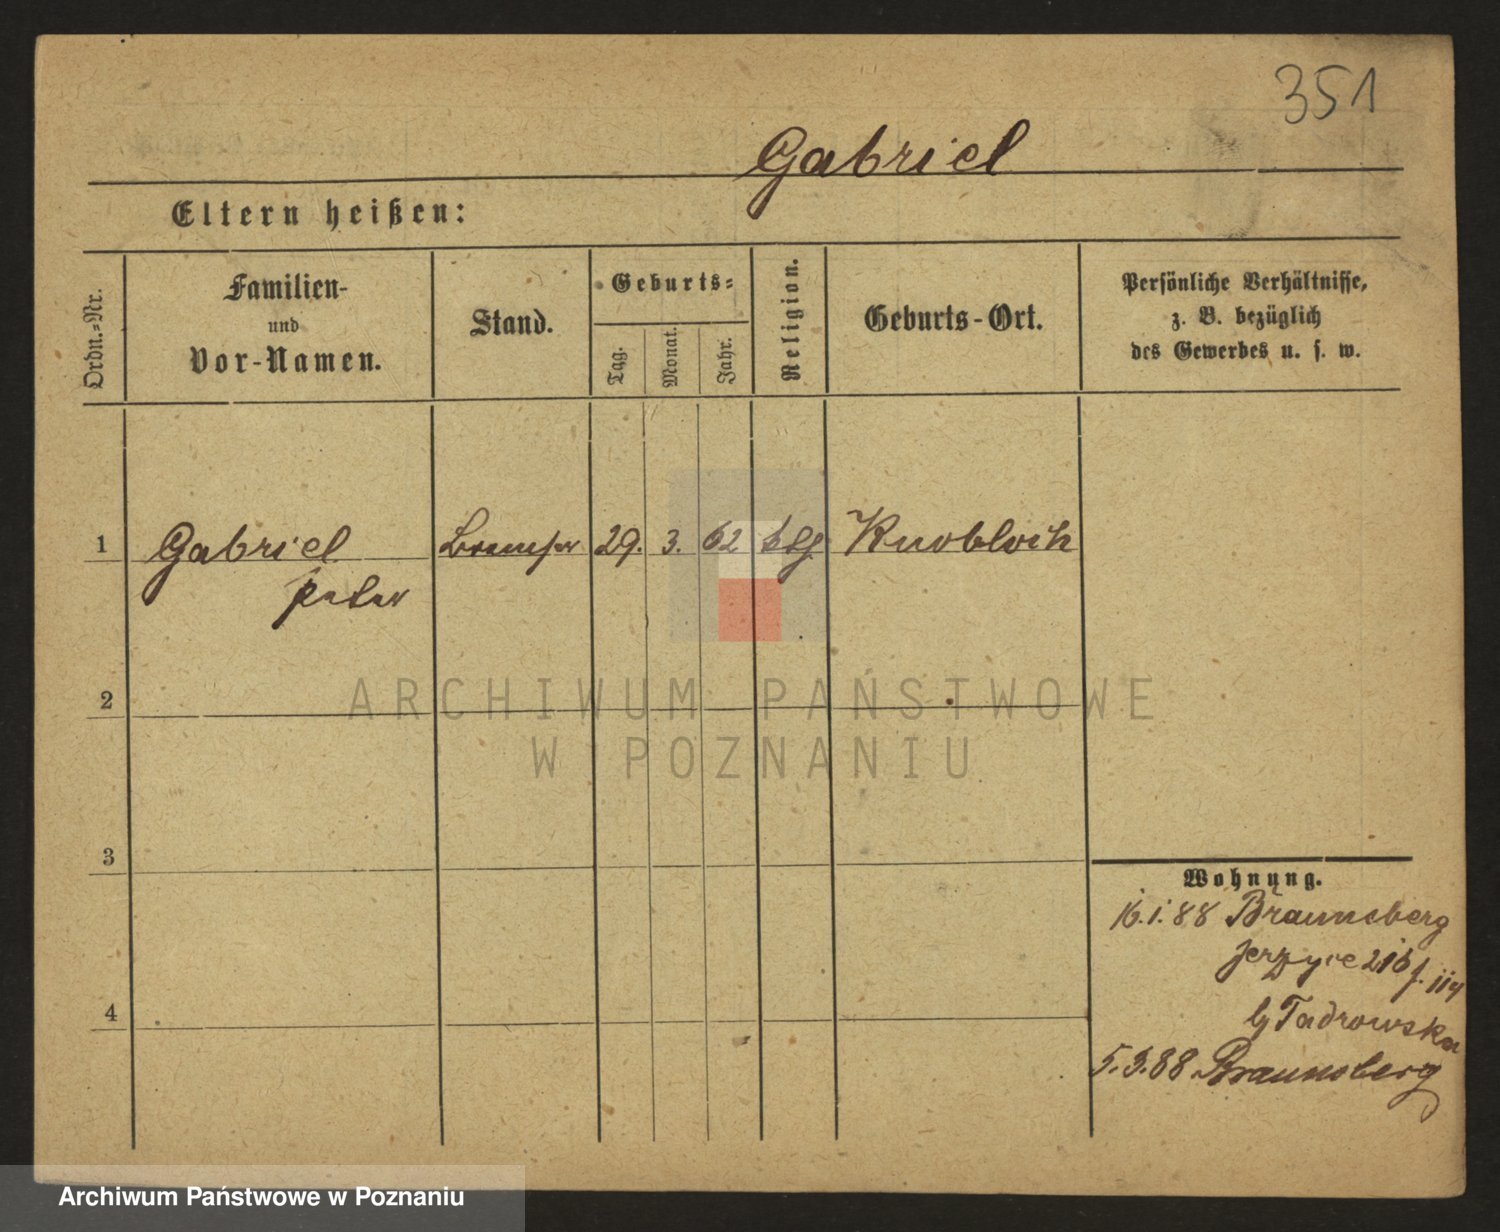 351
Gabriel
Eltern heißen:
Ordn.=Nr.
Familien-
und
Vor-Namen.
Stand.
Geburts=
Tag.
Monat.
Jahr.
Religion.
Geburts-Ort.
Persönliche Verhältnisse,
z. B. bezüglich
des Gewerbes u. s. w.
1 Gabriel 29. 3. 62 Knobloch
Peter
2
3
4
Wohnung.
16.1.88 Braunsberg
Jerzyce
Tadrowska
5.3.88 Braunsberg
ARCHIWUM PAŃSTWOWE
W POZNANIU
Archiwum Państwowe w Poznaniu